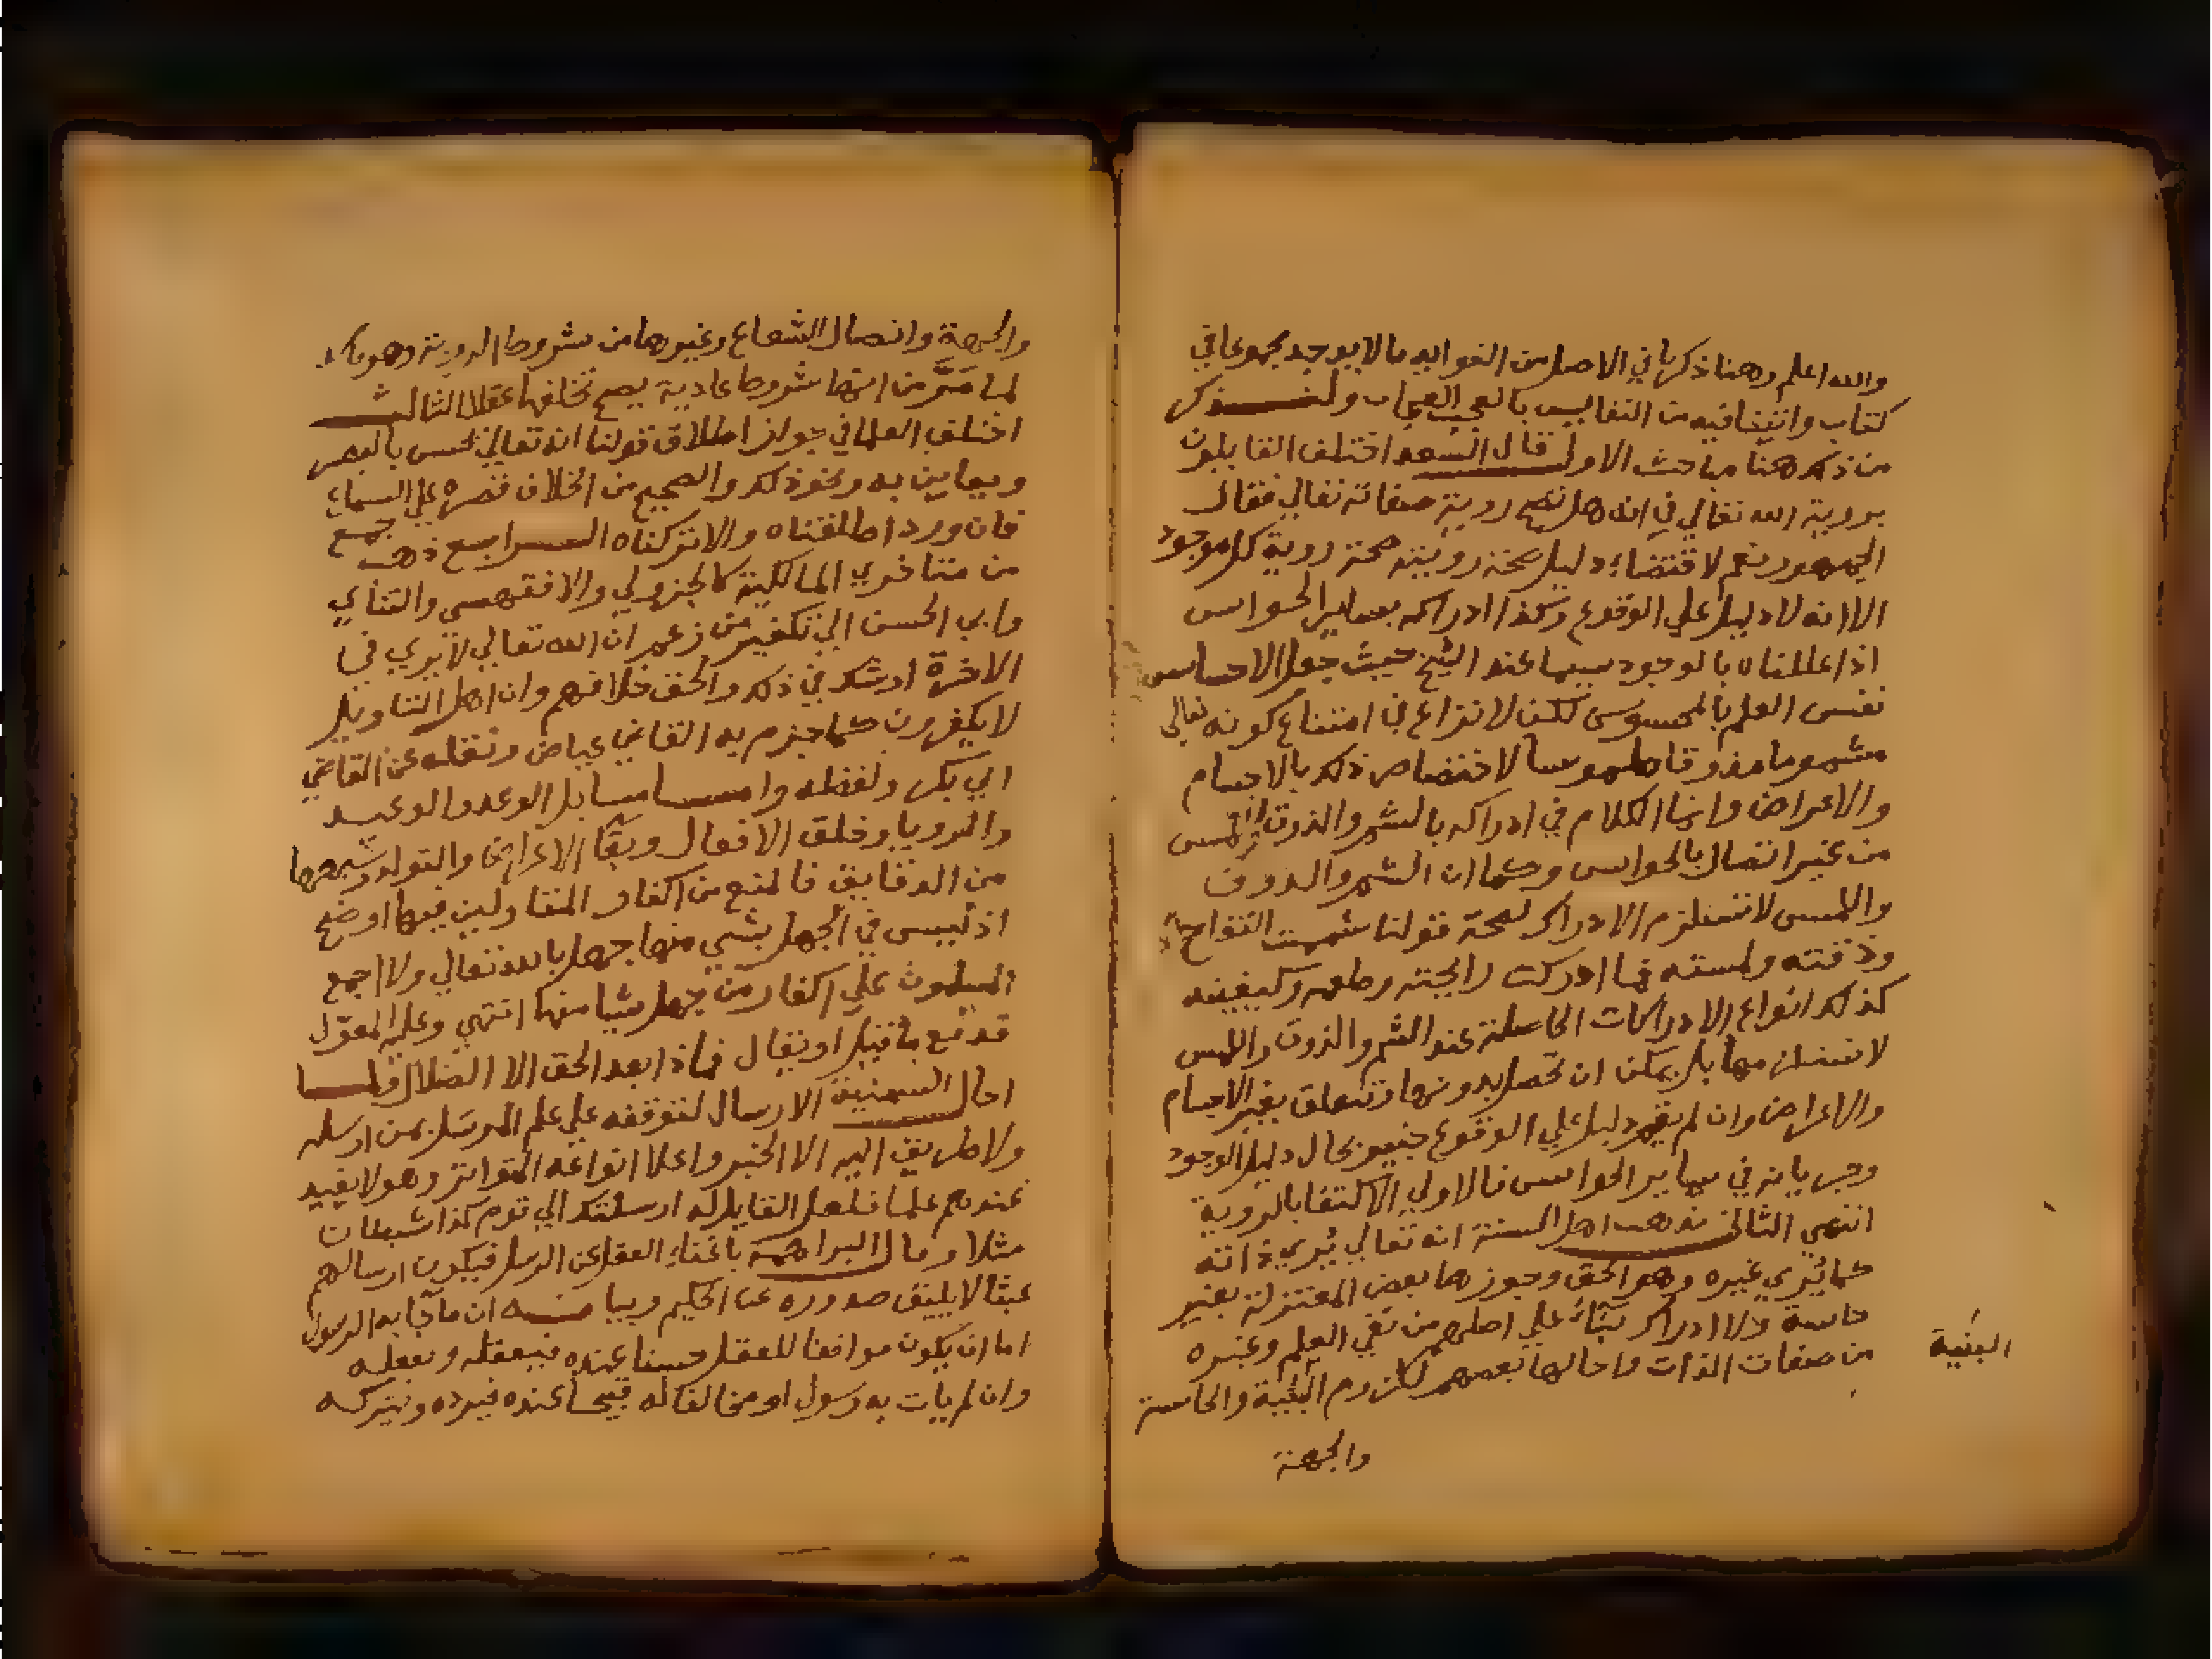 والله اعلم وهنا ذكرنا في الاصل من الفوايد ما لا يوجد مجموعا في
كتاب واتينا فيه من النفايس بالعجب العجاب ولنذكر
من ذلك هنا مباحث الاول قال السعد اختلف القايلون
بروية الله تعالي في انه هل تصح روية صفاته تعالي فقال
الجمهور نعم لاقتضاء دليل صحة رويته صحة روية كل موجود
الا انه لا دليل علي الوقوع وكذا ادراكه بساير الحواس
اذا عللناه بالوجود سيما عند الشيخ حيث جعل الاحساس
نفس العلم بالمحسوس لكن لا نزاع في امتناع كونه تعالي
مشموما مذوقا ملموسا لاختصاص ذلك بالاجسام
والاعراض وانما الكلام في ادراكه بالشم والذوق واللمس
من غير اتصال بالحواس وكما ان الشم والذوق
واللمس لا تستلزم الادراك لصحة قولنا شممت التفاح
وذقته ولمسته فما ادركت رايحته وطعمه وكيفيته
كذلك انواع الادراكات الحاصلة عند الشم والذوق واللمس
لا تستلزمها بل يمكن ان تحصل بدونها وتتعلق بغير الاجسام
والاعراض وان لم يقم دليل علي الوقوع خبير بحال دليل الوجود
وجريانه في ساير الحواس فالاولي الاكتفا بالروية
انتهي الثاني مذهب اهل السنة انه تعالي يُري ذاته
كما يُري غيره وهو الحق وجوزها بعض المعتزلة بغير
حاسة ولا ادراك بناء علي اصلهم من نفي العلم وغيره
من صفات الذات واحالها بعضهم للزوم البنية والحاسة
البنية
والجهة
والجهة واتصال الشعاع وغيرها من شروط الروية وهو
لما مَرَّ من انها شروط عادية يصح تخلفها عقلا الثالث
اختلف العلما في جواز اطلاق قولنا انه تعالي يحس بالبصر
ويعاين به ونحو ذلك والصحيح من الخلاف قصره علي السماع
فان ورد اطلقناه والا تركناه الرابع ذهب جمع
من متاخري المالكية كالجزولي والاقفهسي والتتاي
وابي الحسن الي تكفير من زعم ان الله تعالي لا يري في
الاخرة اوشك في ذلك والحق خلافهم وان اهل التاويل
لا يكفرون كما جزم به القاضي عياض ونقله عن القاضي
ابي بكر ولفظه واما مسايل الوعد والوعيد
والرويا وخلق الافعال وبقا الاعراض والتولد وشبهها
من الدقايق فالمنع من اكفار المتاولين فيها اوضح
اذ ليس في الجهل بشي منها جهل بالله تعالي ولا اجمع
المسلمون علي اكفار من جهل شيا منها انتهي وعليه المعوّل
قد فع ما قبل او يقال فماذا بعد الحق الا الضلال ولما
احال السمنية الارسال لتوقفه علي علم المرسَل بمن ارسله
ولا طريق اليه الا الخبر واعلا انواعه المتواتر وهو لا يفيد
عندهم علما فلعل القايل له ارسلتك الي قوم كذا شيطان
مثلا وقال البراهمة باغناء العقل عن الرسل فيكون ارسالهم
عبثا لا يليق صدوره عن الحكيم وبيانه ان ما جا به الرسول
اما ان يكون موافقا للعقل حسنا عنده فيعقله ويفعله
وان لم يات به رسول او مخالفا له قبيحا عنده فيرده ويتركه